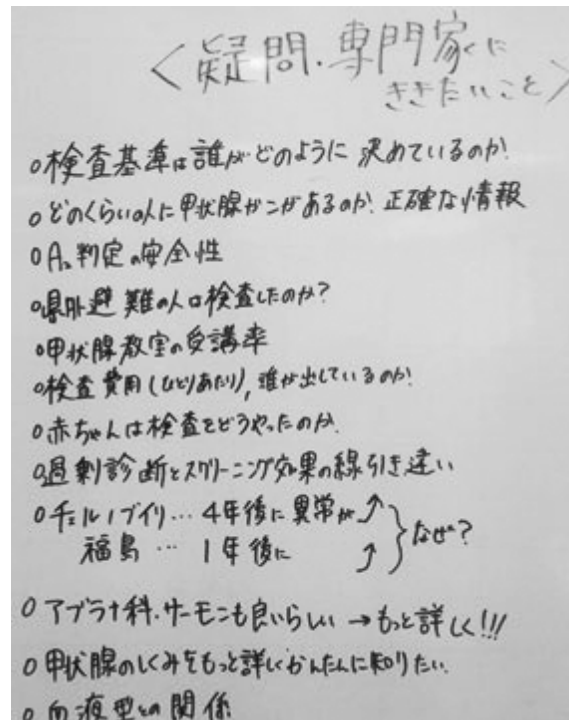 <疑問・専門家に
ききたいこと>
○検査基準は誰がどのように 決めているのか?
○どのくらいの人に甲状腺がこがあるのか、正確な情報
○A₂判定の安全性
○県外避難の人は検査したのか?
○甲状腺教室の受講率
○検査費用(ひとりあたり), 誰が出しているのか?
○赤ちゃんは検査をどうやったのか
○過剰診断とスクリーニング効果の線引き違い
○チェルノブイリ… 4年後に異常が↑
福島 … 1年後に ↑ } なぜ?
○アブラナ科・サーモンも良いらしい →もっと詳しく!!!
○甲状腺のしくみをもっと詳しくかんたんに知りたい.
○血液型との関係